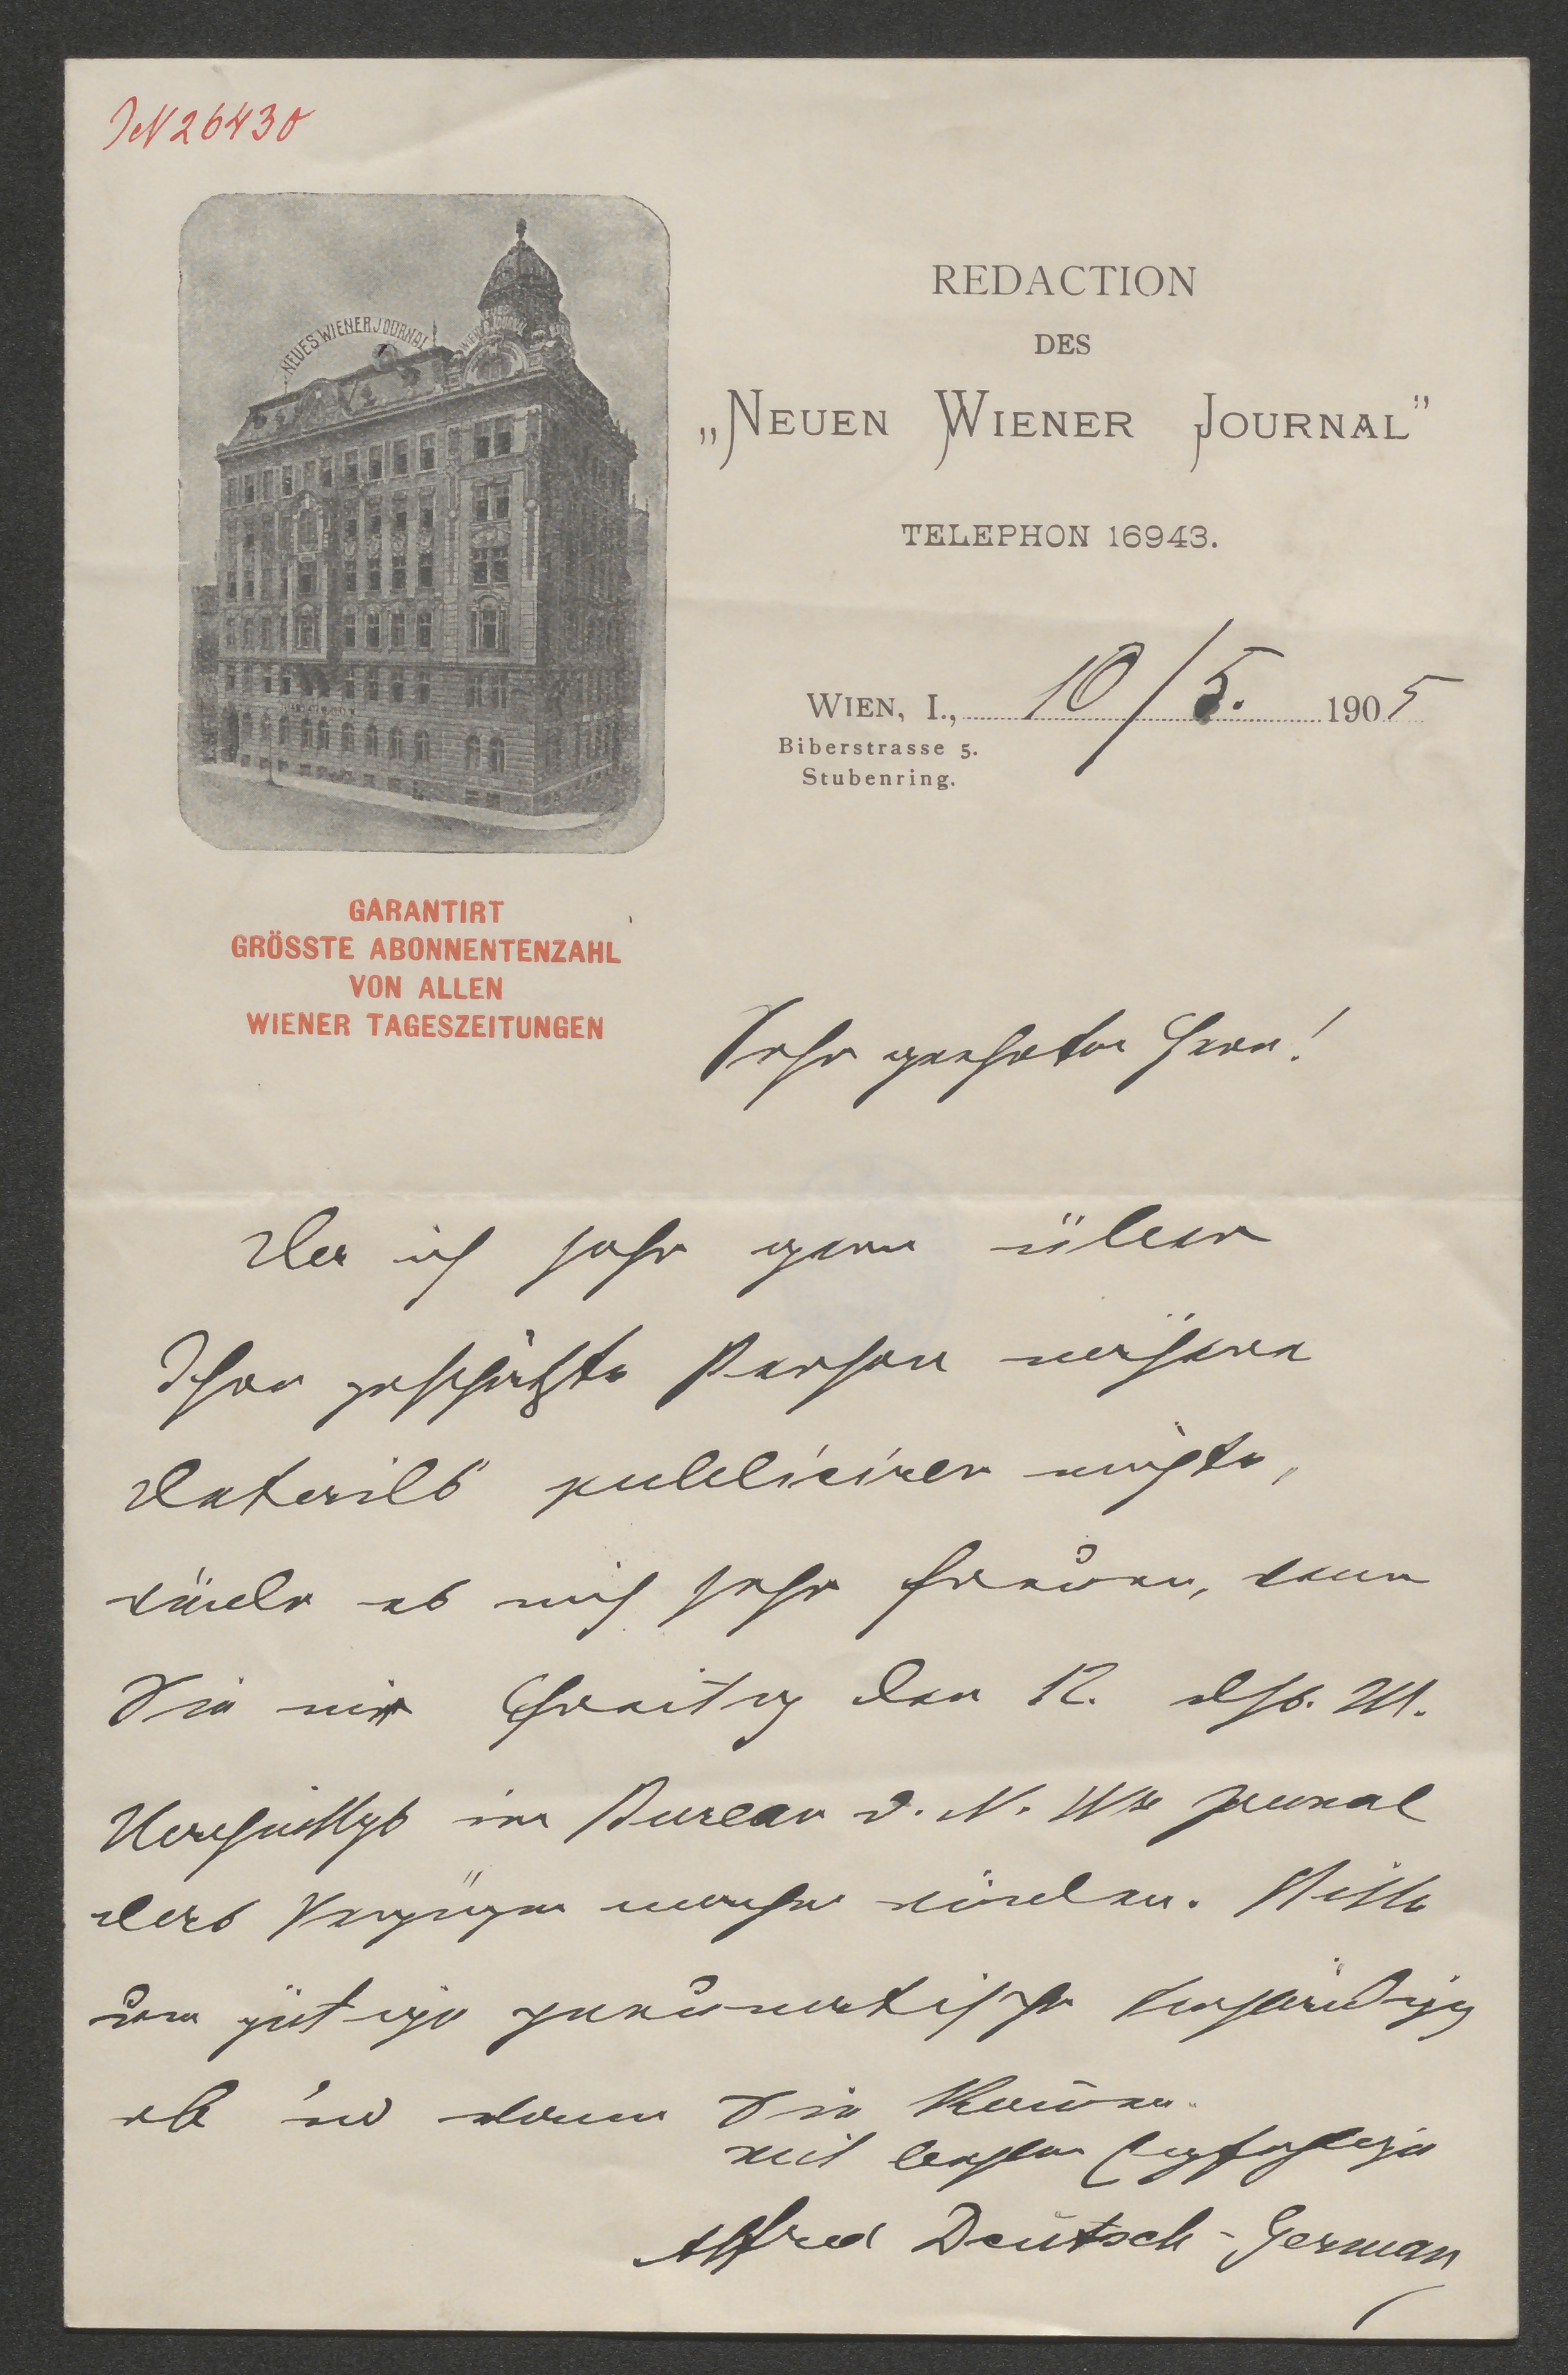 IN 26430
NEUES WIENER JOURNAL
REDACTION
DES
„NEUEN WIENER JOURNAL"
TELEPHON 16943.
WIEN, I., 10/5. 1905
Biberstrasse 5.
Stubenring.
GARANTIRT
GRÖSSTE ABONNENTENZAHL
VON ALLEN
WIENER TAGESZEITUNGEN
Sehr geehrter Herr!
Da ich sehr gern über
Ihre geschätzte Person nähere
Details publiciren möchte,
würde es mich sehr freuen, wenn
Sie mir Freitag den 12. dss. M.
Nachmittgs im Bureau d. N. Wr Journal
das Vergnügen machen würden. Bitte
um gütige pneumatische Verständigg
ob und wann Sie kommen.
mit besten
Alfred Deutsch-German